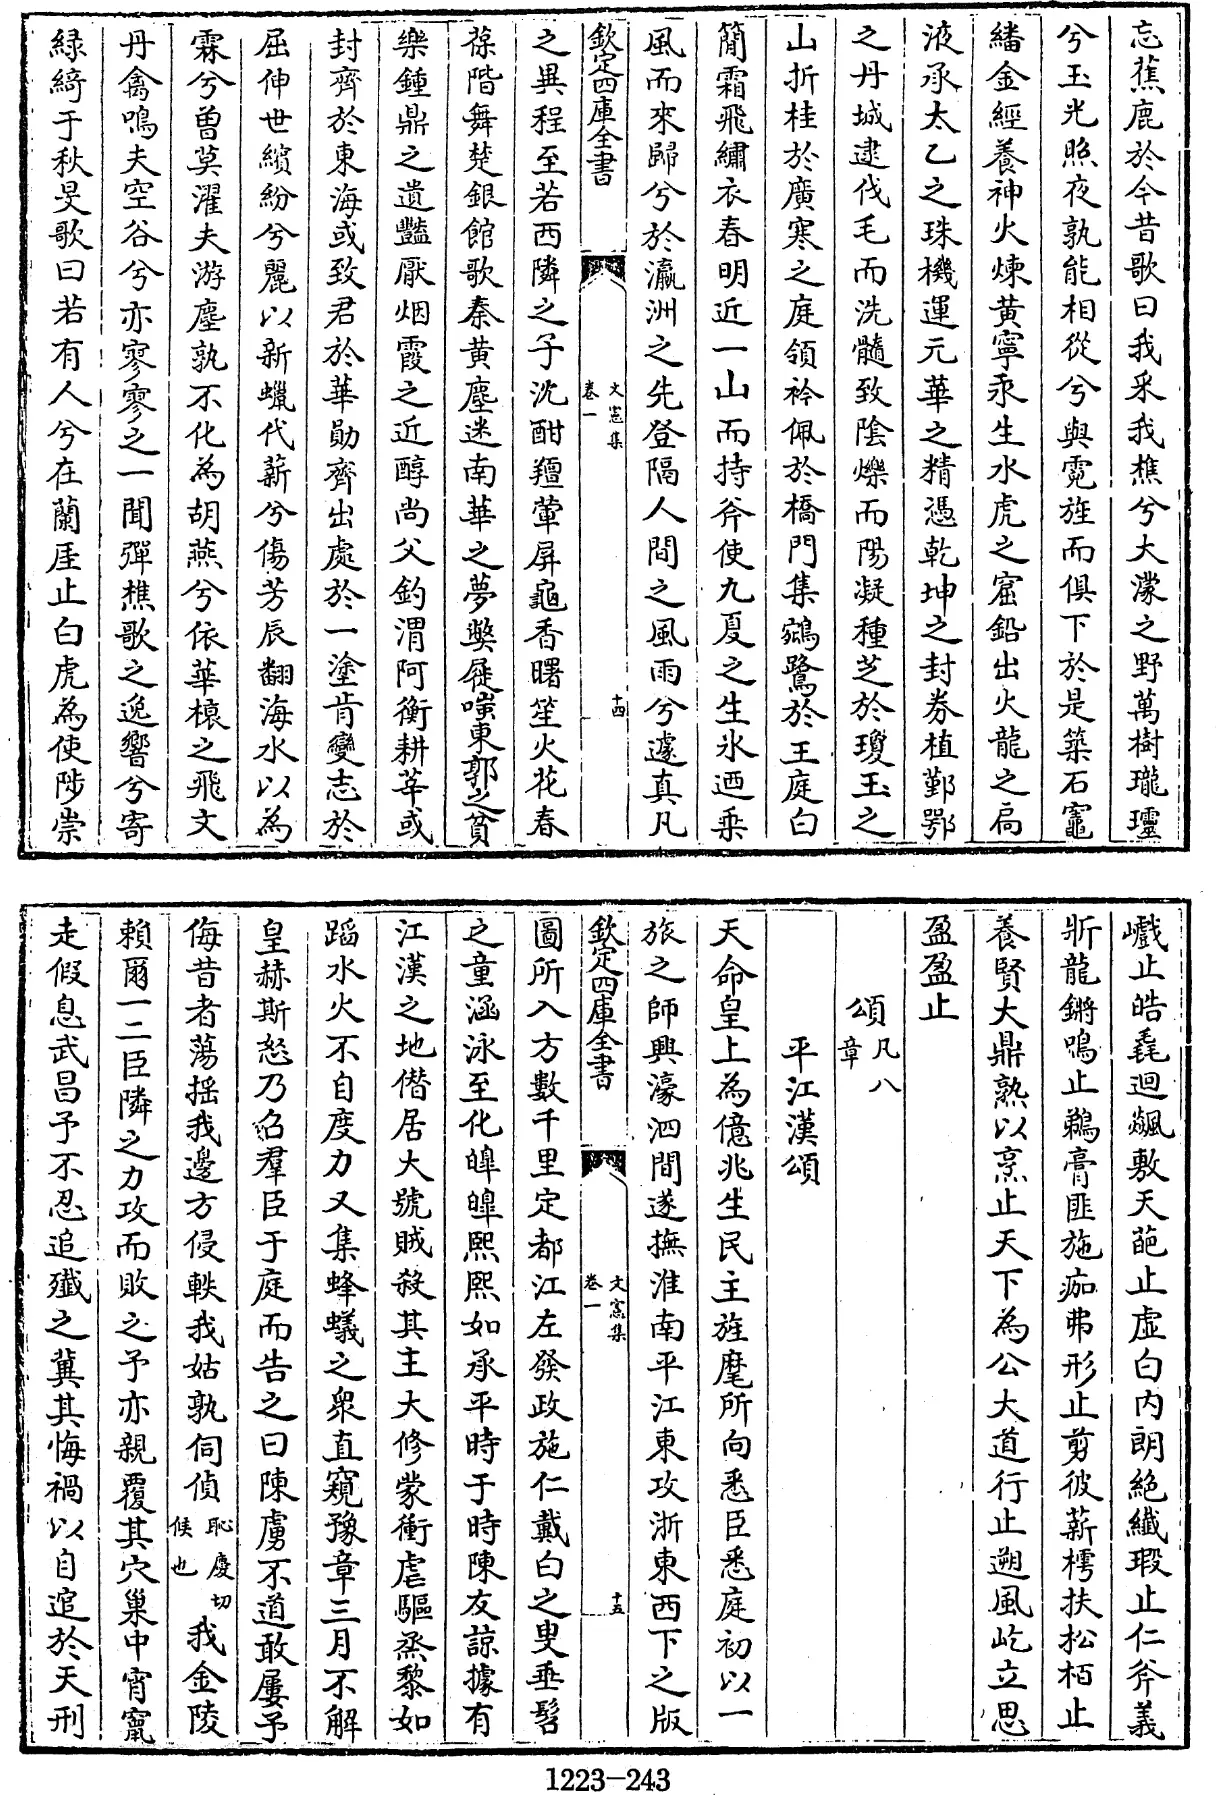 忘蕉鹿於今昔歌曰我采我樵兮大濛之野萬樹瓏璁
兮玉光照夜孰能相從兮與霓旌而俱下於是築石竈
繙金經養神火煉黄寧汞生水虎之窟鉛出火龍之扃
液承太乙之珠機運元華之精憑乾坤之封券植鄞鄂
之丹城逮伐毛而洗髓致陰爍而陽凝種芝於瓊玉之
山折桂於廣寒之庭領衿佩於橋門集鵷鷺於王庭白
簡霜飛繡衣春明近一山而持斧使九夏之生氷迺乗
風而來歸兮於瀛洲之先登隔人間之風雨兮遽真凡
欽定四庫全書
文憲集
卷一
十四
之異程至若西隣之子沈酣羶葷屏龜香曙笙火花春
葆階舞楚銀館歌秦黄塵迷南華之夢獘屣嗤東郭之貧
樂鍾鼎之遺豔厭烟霞之近醇尚父釣渭阿衡耕莘或
封齊於東海或致君於華勛齊出處於一塗肯變志於
屈伸世繽紛兮麗以新蠟代薪兮傷芳辰翻海水以為
霖兮曽莫濯夫游塵孰不化為胡燕兮依華榱之飛文
丹禽鳴夫空谷兮亦寥寥之一聞彈樵歌之逸響兮寄
緑綺于秋旻歌曰若有人兮在蘭厓止白虎為使陟崇
巇止皓毳迴飊敷天葩止虚白内朗絶纎瑕止仁斧義
斨龍鏘鳴止鵜膏匪施痂弗形止剪彼薪樗扶松栢止
養賢大鼎熟以烹止天下為公大道行止遡風屹立思
盈盈止
頌凡八
章
平江漢頌
天命皇上為億兆生民主旌麾所向悉臣悉庭初以一
旅之師興濠泗間遂撫淮南平江東攻浙東西下之版
欽定四庫全書
文憲集
卷一
十五
圖所入方數千里定都江左發政施仁戴白之叟垂髫
之童涵泳至化皥皥熙熙如承平時于時陳友諒據有
江漢之地僭居大號賊殺其主大修蒙衝虐驅烝黎如
蹈水火不自度力又集蜂蟻之衆直窺豫章三月不解
皇赫斯怒乃召羣臣于庭而告之曰陳虜不道敢屢予
侮昔者蕩搖我邊方侵軼我姑孰伺偵恥慶切
候也我金陵
賴爾一二臣隣之力攻而敗之予亦親覆其穴巢中宵竄
走假息武昌予不忍追殱之冀其悔禍以自逭於天刑
1223-243